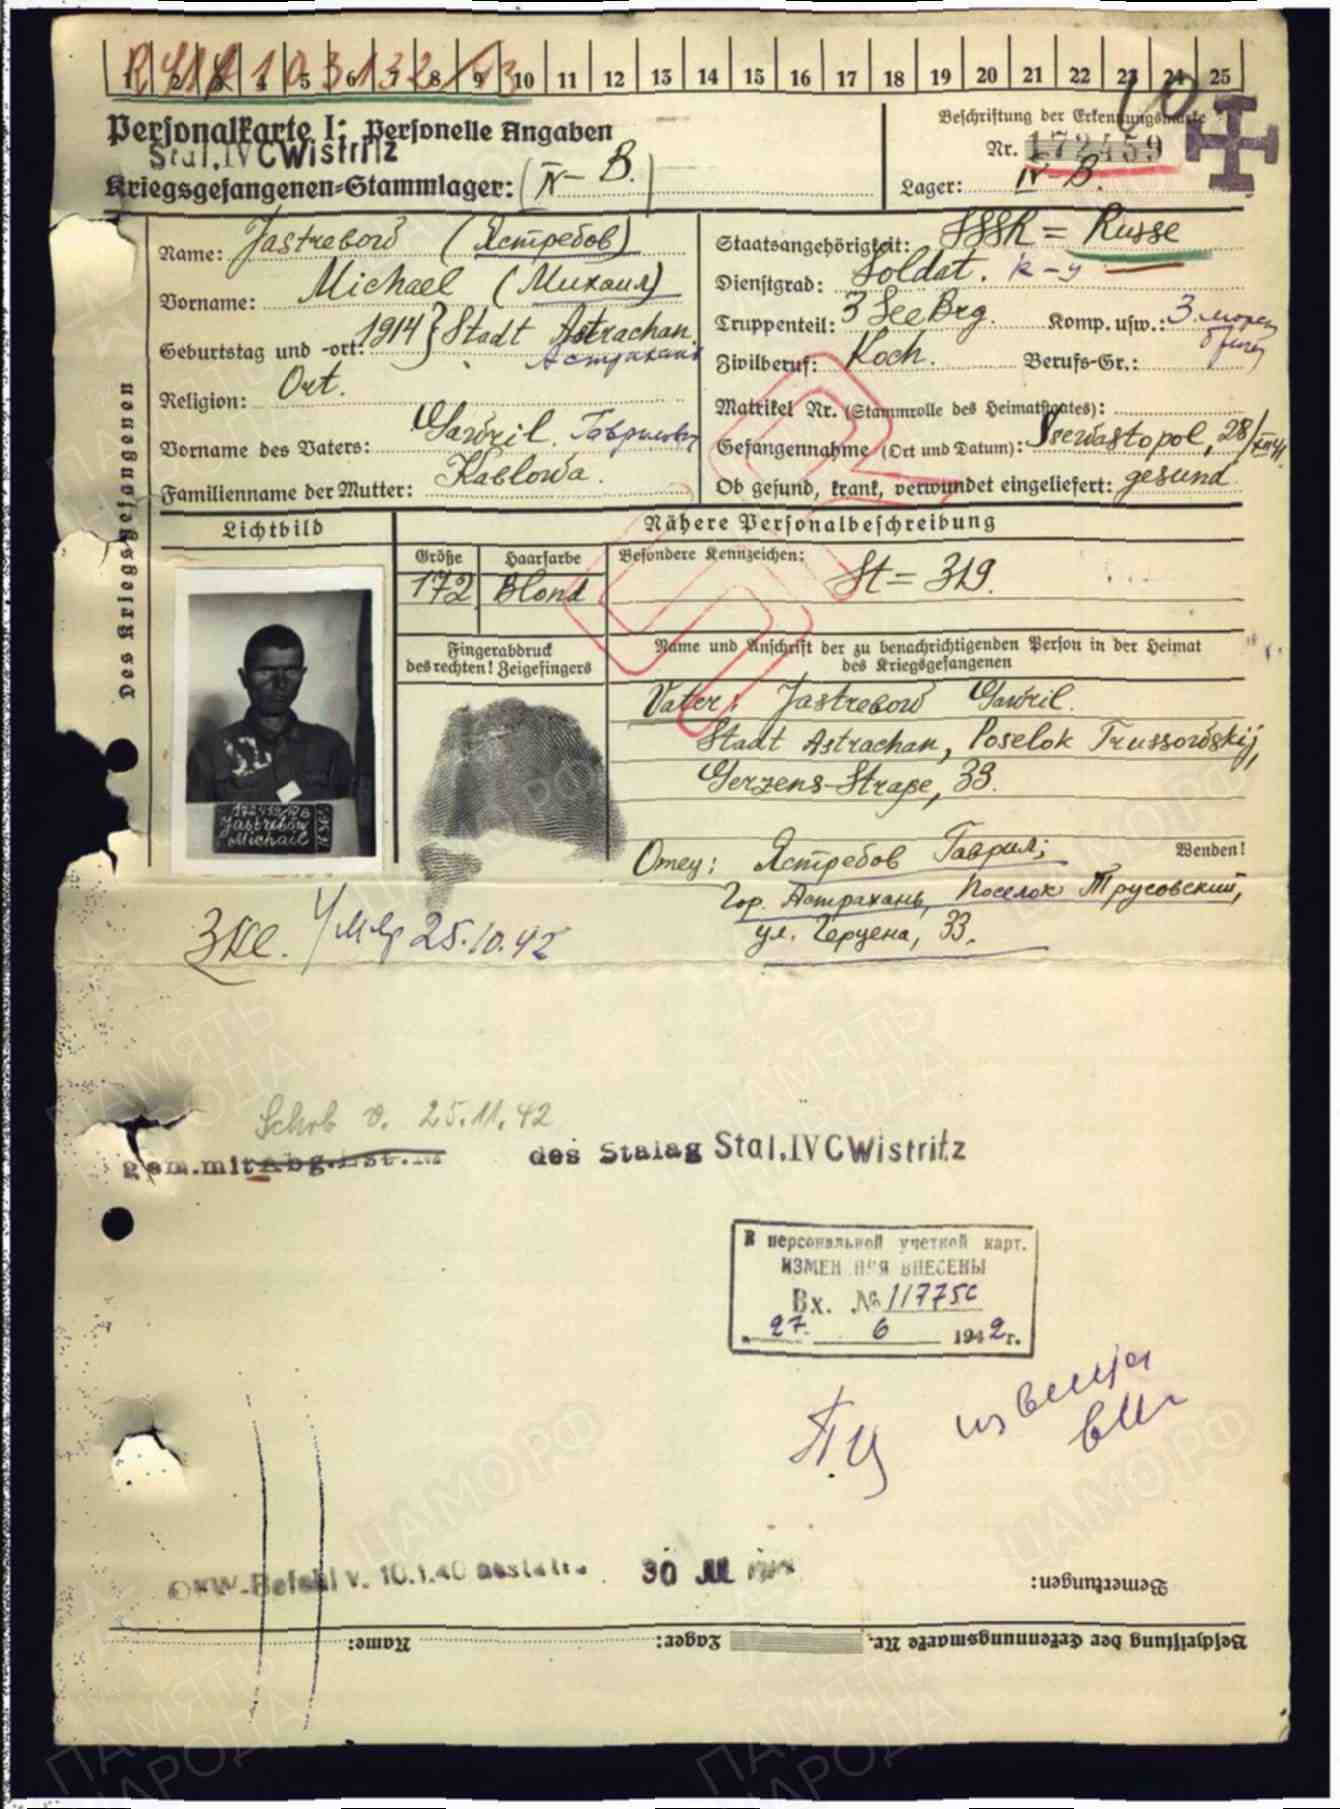 1 2 3 4 5 6 7 8 9 10 11 12 13 14 15 16 17 18 19 20 21 22 23 24 25
Personalkarte I: Personelle Angaben
Stal.IVC Wistritz
Kriegsgefangenen-Stammlager: (IV-B.)
Beschriftung der Erkennungsmarke
Nr. 172459
Lager: IV-B.
Des Kriegsgefangenen
Name: Jastrebow (Ястребов)
Vorname: Michael (Михаил)
Geburtstag und -ort: 1914 } Stadt Astrachan.
Астрахань
Religion: Ort.
Vorname des Vaters: Gawril. Гаврилович
Familienname der Mutter: Kablowa.
Staatsangehörigkeit: SSSR = Russe
Dienstgrad: Soldat. к-ц
Truppenteil: 3 See Brg. Komp. usw.: 3 морск
бриг
Zivilberuf: Koch. Berufs-Gr.:
Matrikel Nr. (Stammrolle des Heimatstaates):
Gefangennahme (Ort und Datum): Ssewastopol, 28/
Ob gesund, krank, verwundet eingeliefert: gesund.
Lichtbild
Nähere Personalbeschreibung
Größe Haarfarbe Besondere Kennzeichen:
172 Blond St = 319.
Fingerabdruck
des rechten! Zeigefingers
Name und Anschrift der zu benachrichtigenden Person in der Heimat
des Kriegsgefangenen
Vater: Jastrebow Gawril.
Stadt Astrachan, Poselok Trussowskij,
Gerzens-Straße, 33.
172459 IVB
Jastrebow
Michail
Отец: Ястребов Гаврил;
Wenden!
Гор. Астрахань, Поселок Трусовский,
ул. Герцена, 33.
25.10.42
v. 25.11.42
gem.mit Abg.Lst.M des Stalag Stal.IVC Wistritz
В персональной учетной карт.
ИЗМЕНЕНИЯ ВНЕСЕНЫ
Вх. № 11775с
"27" 6 1942г.
OKW-Befehl v. 10.1.40 30 JUL
Bemerkungen:
Beschriftung der Erkennungsmarke Nr. Lager: Name:
ПАМЯТЬ
НАРОДА
ЦАМО.РФ